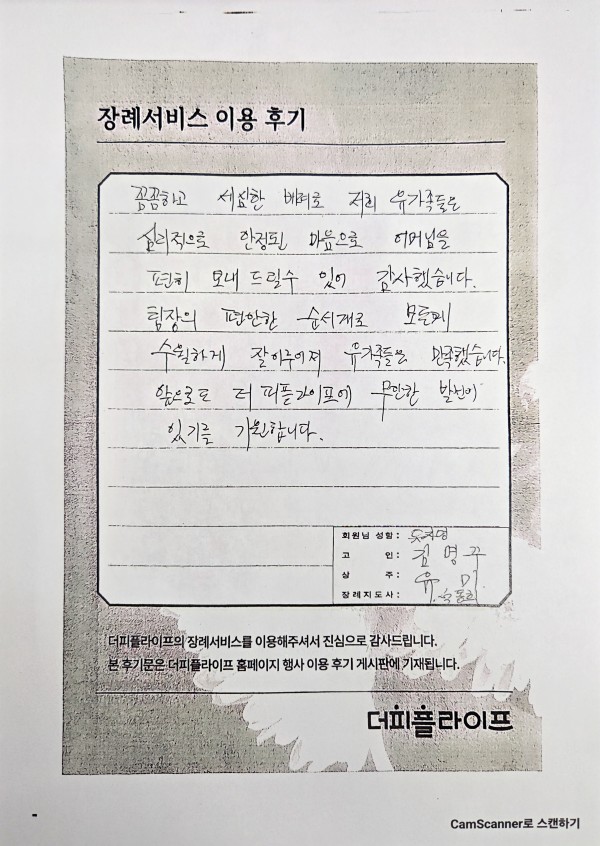 장례서비스 이용 후기
꼼꼼하고 세심한 배려로 저희 유가족들은
심리적으로 안정된 마음으로 어머님을
편히 보내 드릴수 있어 감사했습니다.
팀장의 편안한 순서대로 모든게
수월하게 잘 이루어져 유가족들은 만족했습니다.
앞으로도 더 피플라이프에 무한한 발전이
있기를 기원합니다.
회원님 성함:
고 인: 김 명
상 주: 유
장례지도사:
더피플라이프의 장례서비스를 이용해주셔서 진심으로 감사드립니다.
본 후기문은 더피플라이프 홈페이지 행사 이용 후기 게시판에 기재됩니다.
더피플라이프
CamScanner로 스캔하기